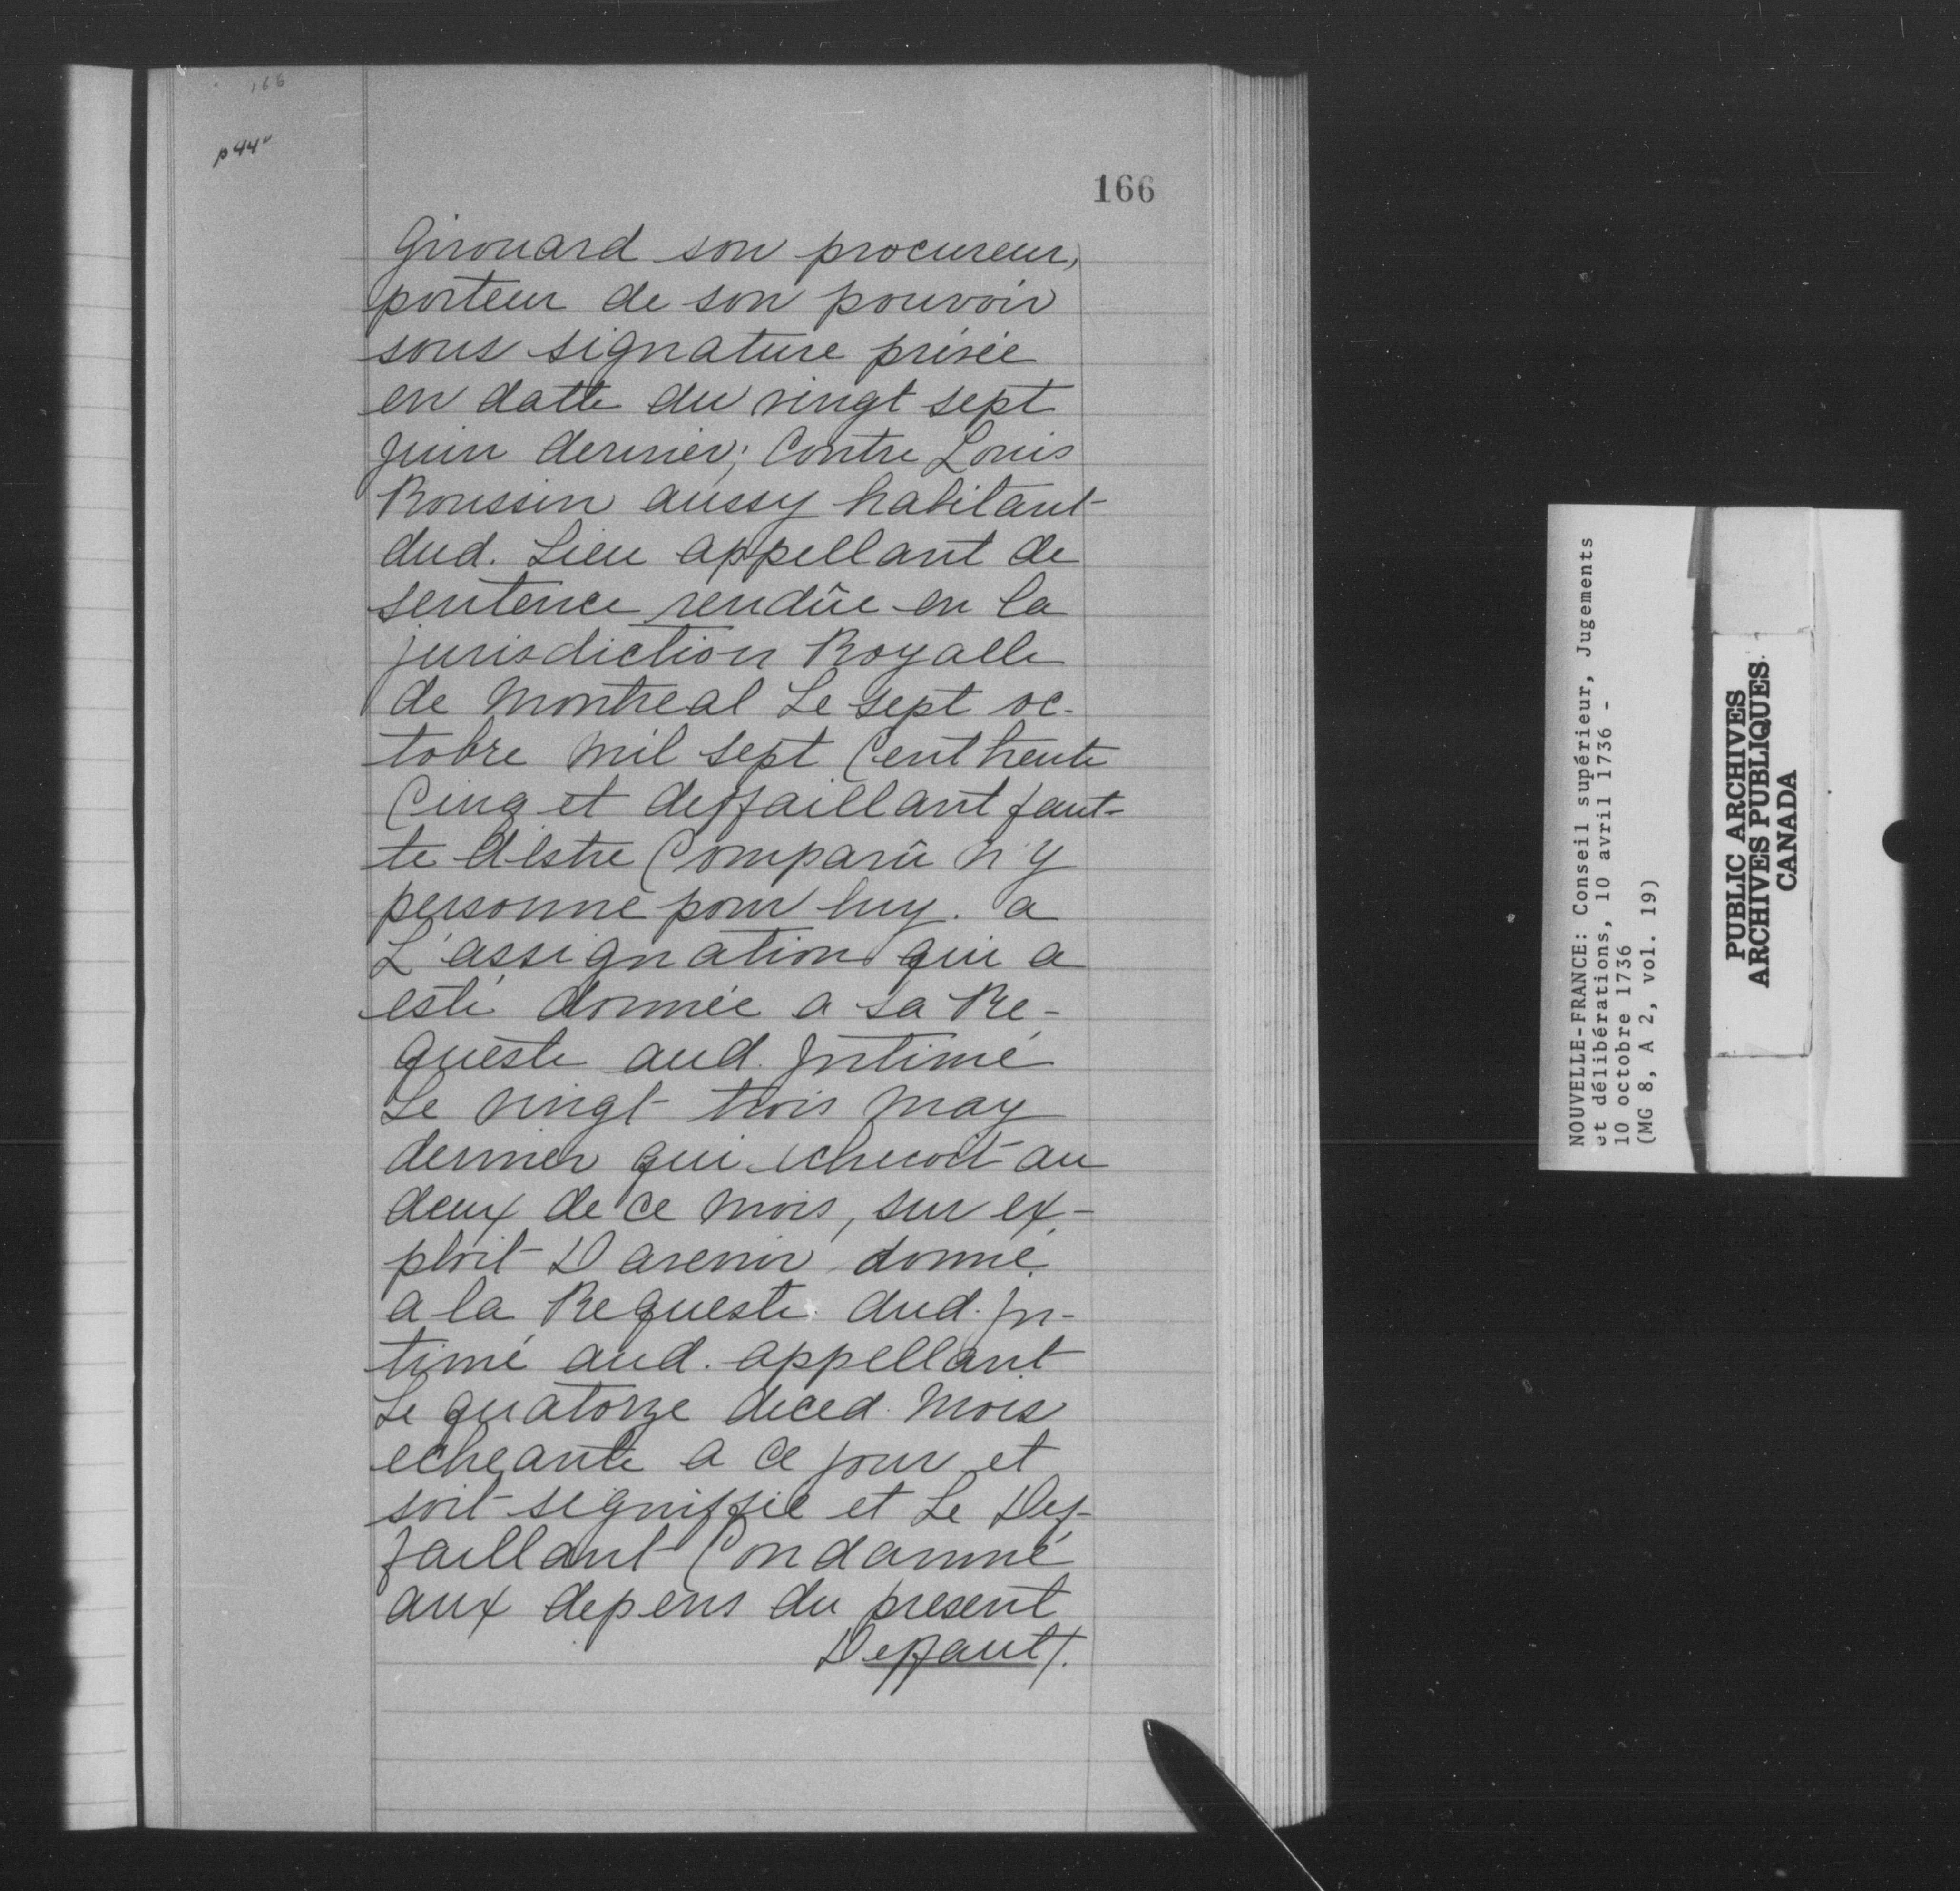 166
p 44v
166
Girouard son procureur,
porteur de son pouvoir
sous signature privée
en datte du vingt sept
Juin dernier; Contre Louis
Roussin aussy habitant
dud. Lieu appellant de
sentence rendûe en la
jurisdiction Royalle
de Montreal Le sept oc-
tobre mil sept Cent trente
Cinq et deffaillant faut-
te d'estre Comparû n'y
personne pour luy. a
L'assignation qui a
esté donnée a sa Re-
queste aud. Intimé
Le vingt trois may
dernier qui echeoit au
deux de ce mois, sur ex-
ploit D'avenir donné
a la Requeste dud. In-
timé aud. appellant
Le quatorze deced. mois
echeante a ce jour et
soit signiffié et Le Def-
faillant Condamné
aux depens du present
Deffaut/.
NOUVELLE-FRANCE: Conseil supérieur, Jugements
et délibérations, 10 avril 1736 -
10 octobre 1736
(MG 8, A 2, vol. 19)
PUBLIC ARCHIVES
ARCHIVES PUBLIQUES
CANADA